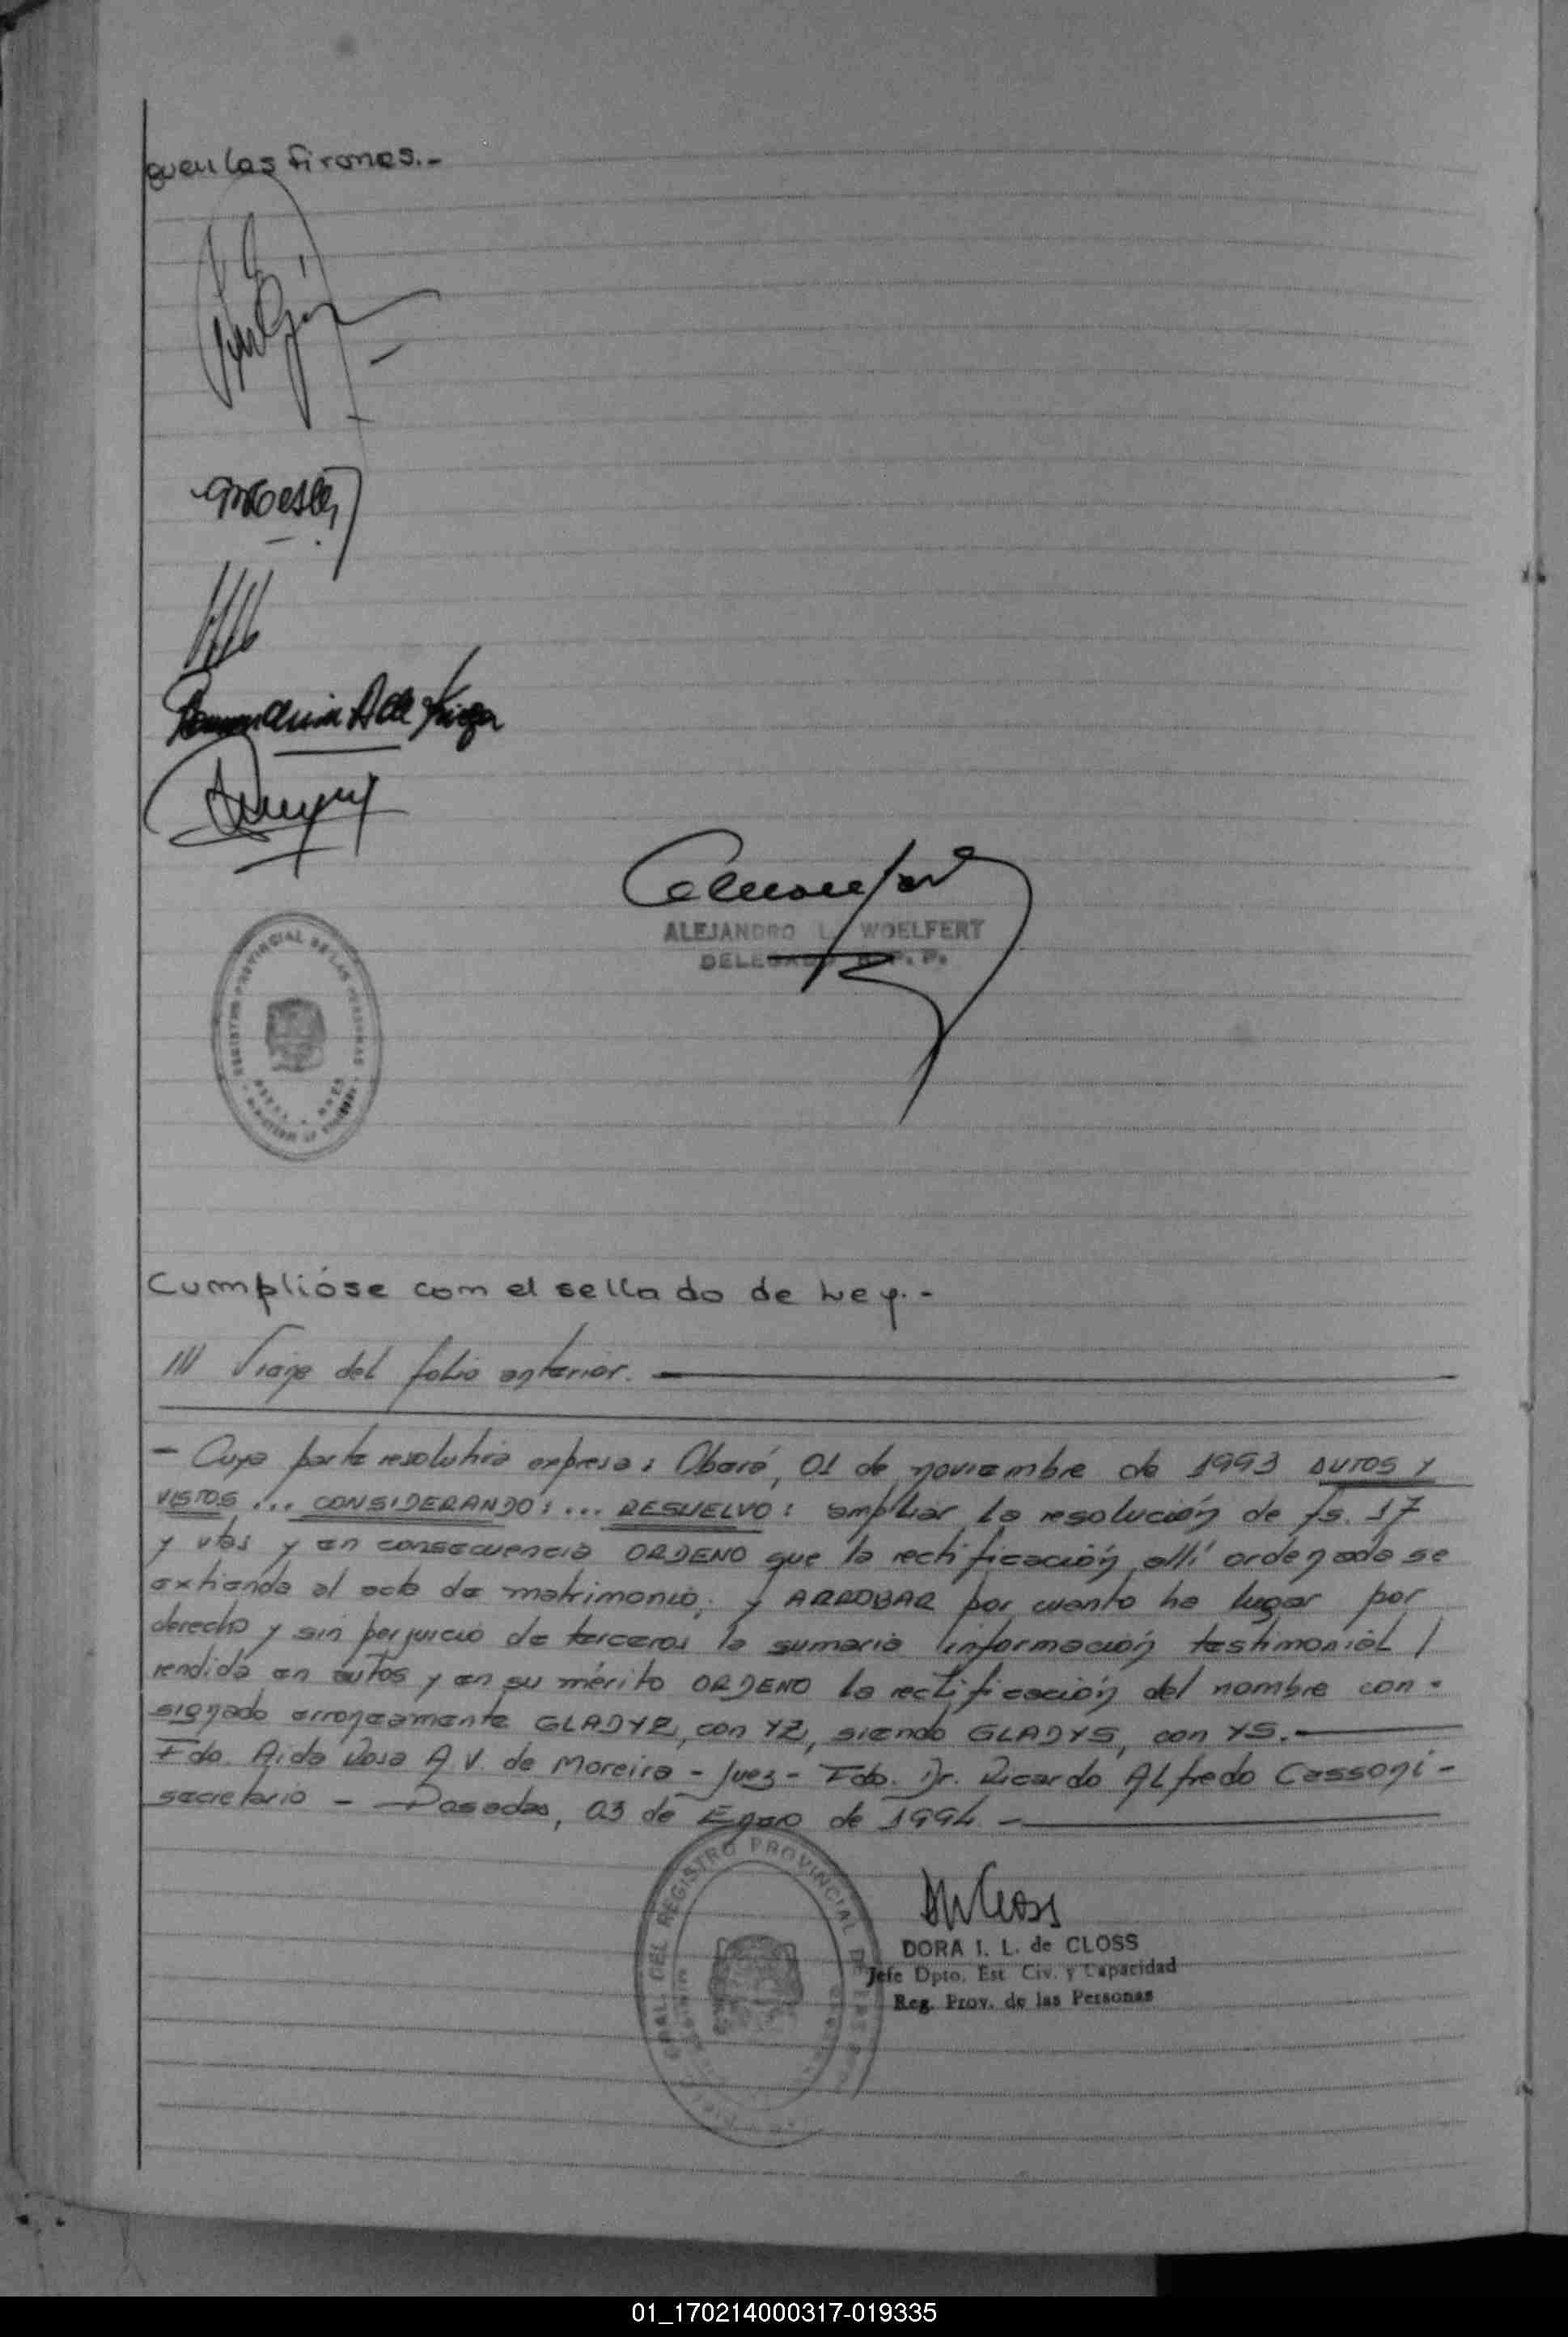 guen las firmas.-
ALEJANDRO L. WOELFERT
DELEGADO R. P. P.
REGISTRO PROVINCIAL DE LAS PERSONAS
Cumplióse con el sellado de Ley.-
/// Viene del folio anterior.
- Cuya parte resolutiva expresa: Oberá, 01 de noviembre de 1993 AUTOS Y
VISTOS ... CONSIDERANDO: ... RESUELVO: ampliar la resolución de fs. 17
y vta y en consecuencia ORDENO que la rectificación allí ordenada se
extienda al acta de matrimonio; y APROBAR por cuanto ha lugar por
derecho y sin perjuicio de terceros la sumaria información testimonial /
rendida en autos y en su mérito ORDENO la rectificación del nombre con-
signado erroneamente GLADYZ, con YZ, siendo GLADYS, con YS.
Fdo. Aida Rosa A. V. de Moreira - Juez - Fdo. Dr. Ricardo Alfredo Cassoni -
secretario - Posadas, 03 de Enero de 1994 -
DEL REGISTRO PROVINCIAL DE LAS
DORA I. L. de CLOSS
Jefe Dpto. Est. Civ. y Capacidad
Reg. Prov. de las Personas
01_170214000317-019335